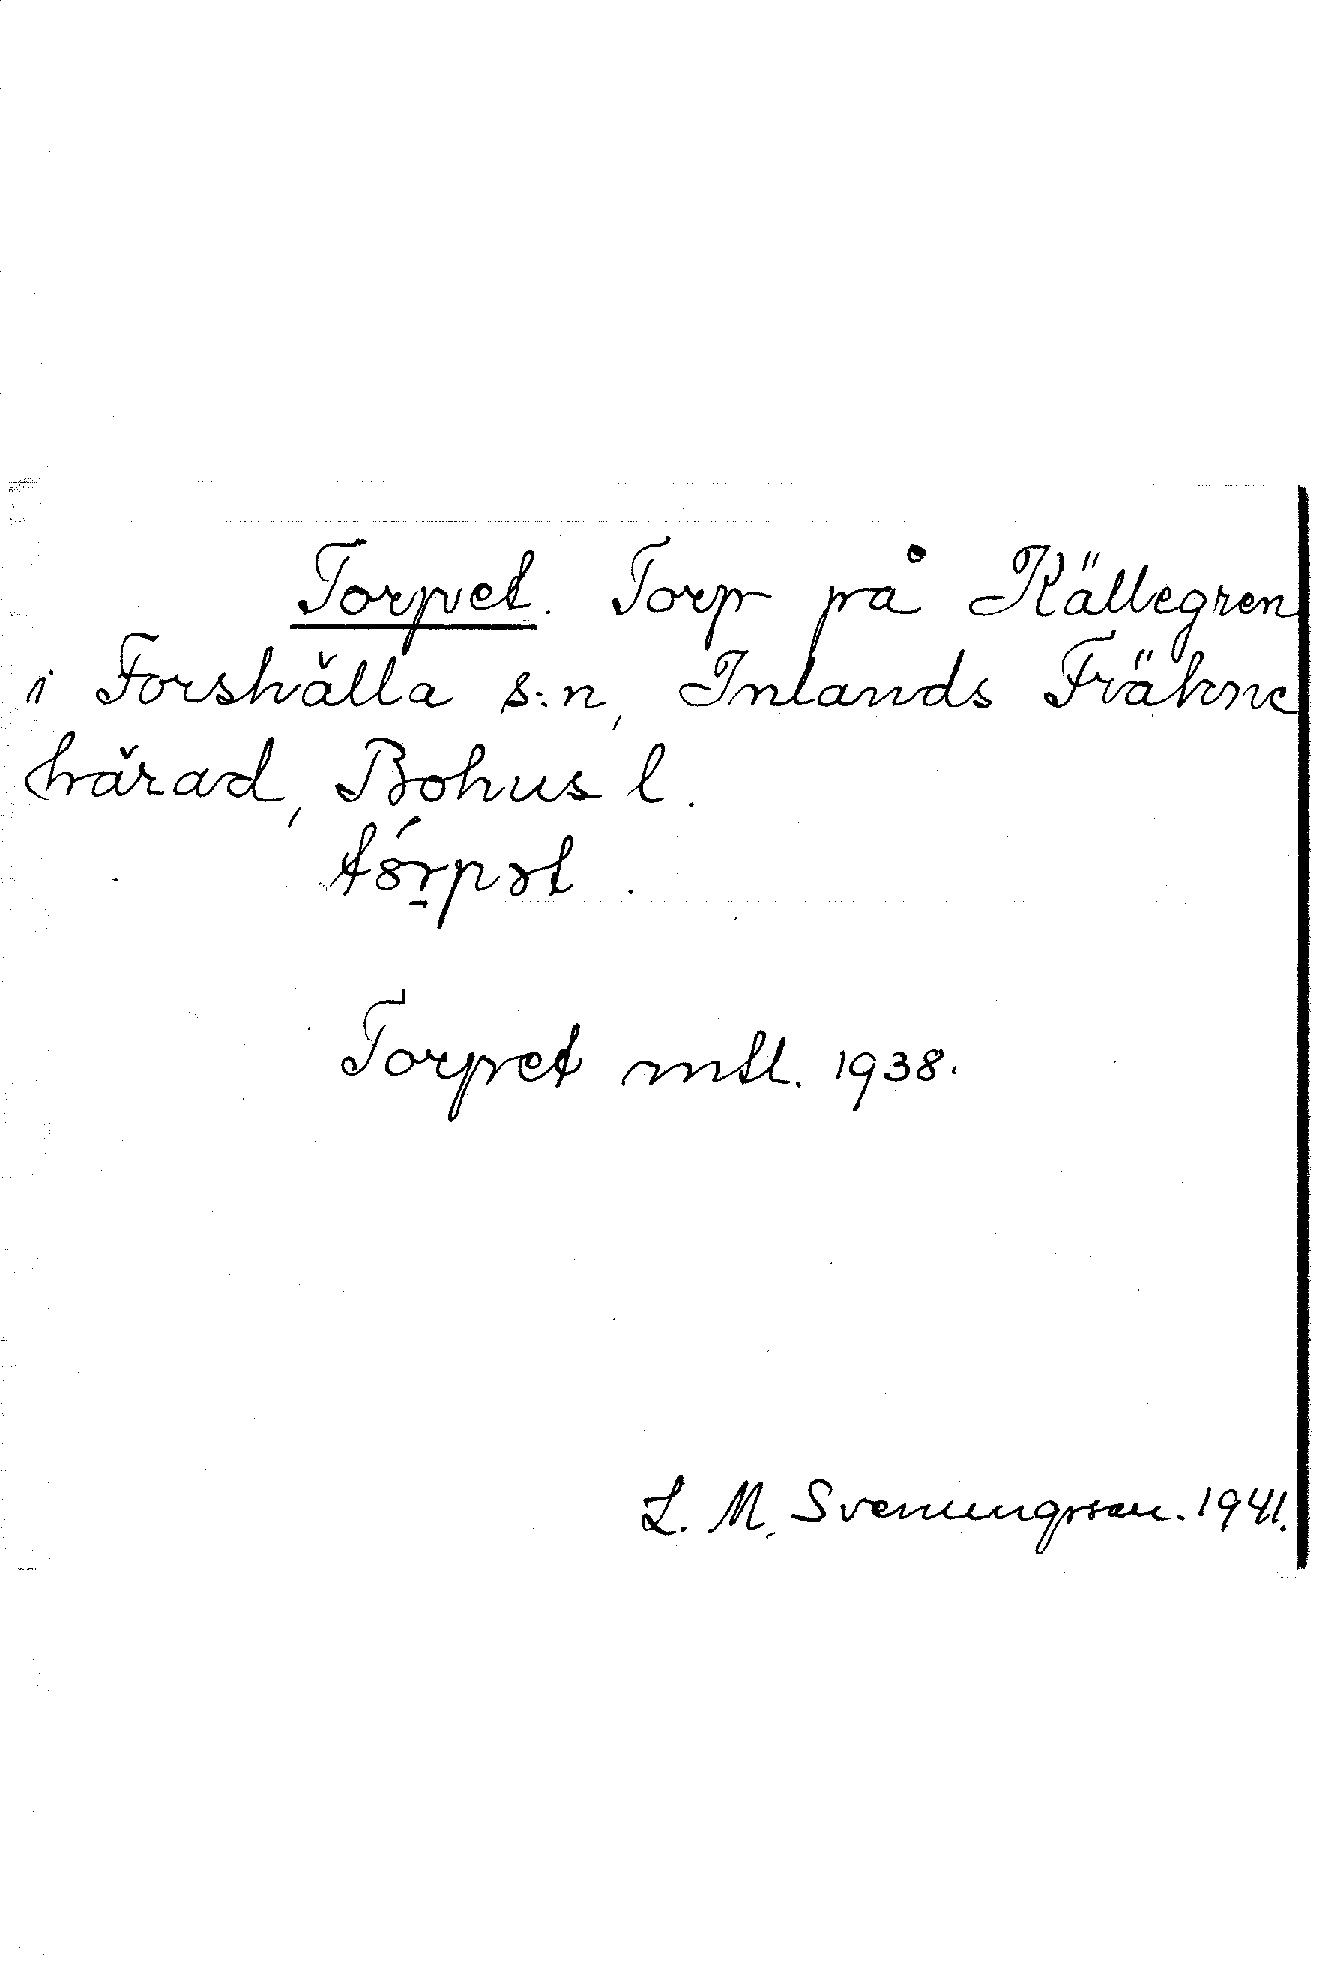 Torpet. Torp på Källegren
i Forshälla s:n, Inlands Fräkne
härad, Bohus l.
Torpet mtl. 1938.
L. M. Svenungsson. 1941.